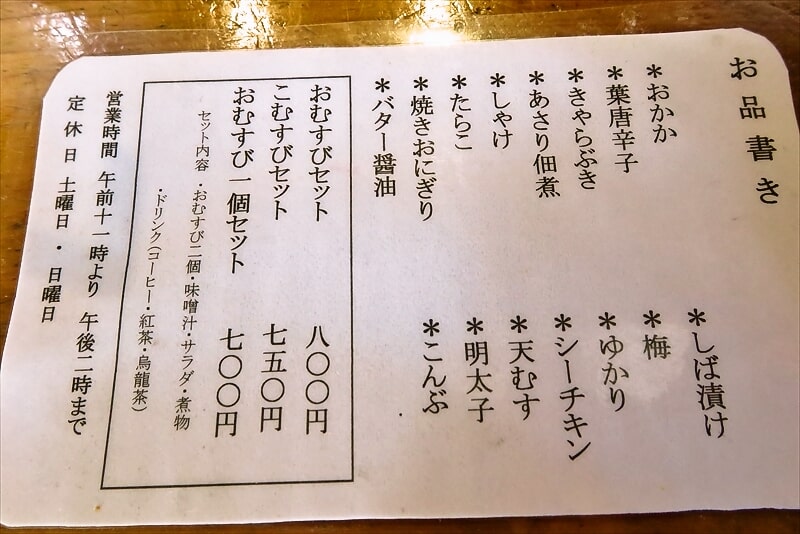 お品書き
＊おかか
＊葉唐辛子
＊きゃらぶき
＊あさり佃煮
＊しゃけ
＊たらこ
＊焼きおにぎり
＊バター醤油
＊しば漬け
＊梅
＊ゆかり
＊シーチキン
＊天むす
＊明太子
＊こんぶ
おむすびセット 八〇〇円
こむすびセット 七五〇円
おむすび一個セット 七〇〇円
セット内容 ・おむすび二個・味噌汁・サラダ・煮物
・ドリンク(コーヒー・紅茶・烏龍茶)
営業時間 午前十一時より 午後二時まで
定休日 土曜日・日曜日